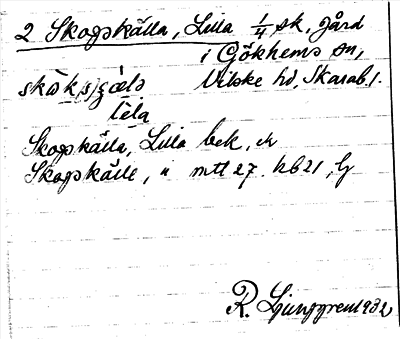 2 Skogskälla, Lilla 1/4 sk, gård
i Gökhems sn,
Vilske hd, Skarab. l.
lila
Skogskälla, Lilla bek, ch
Skogskälle, " mtl 27. hb21, G
R. Ljunggren 1932